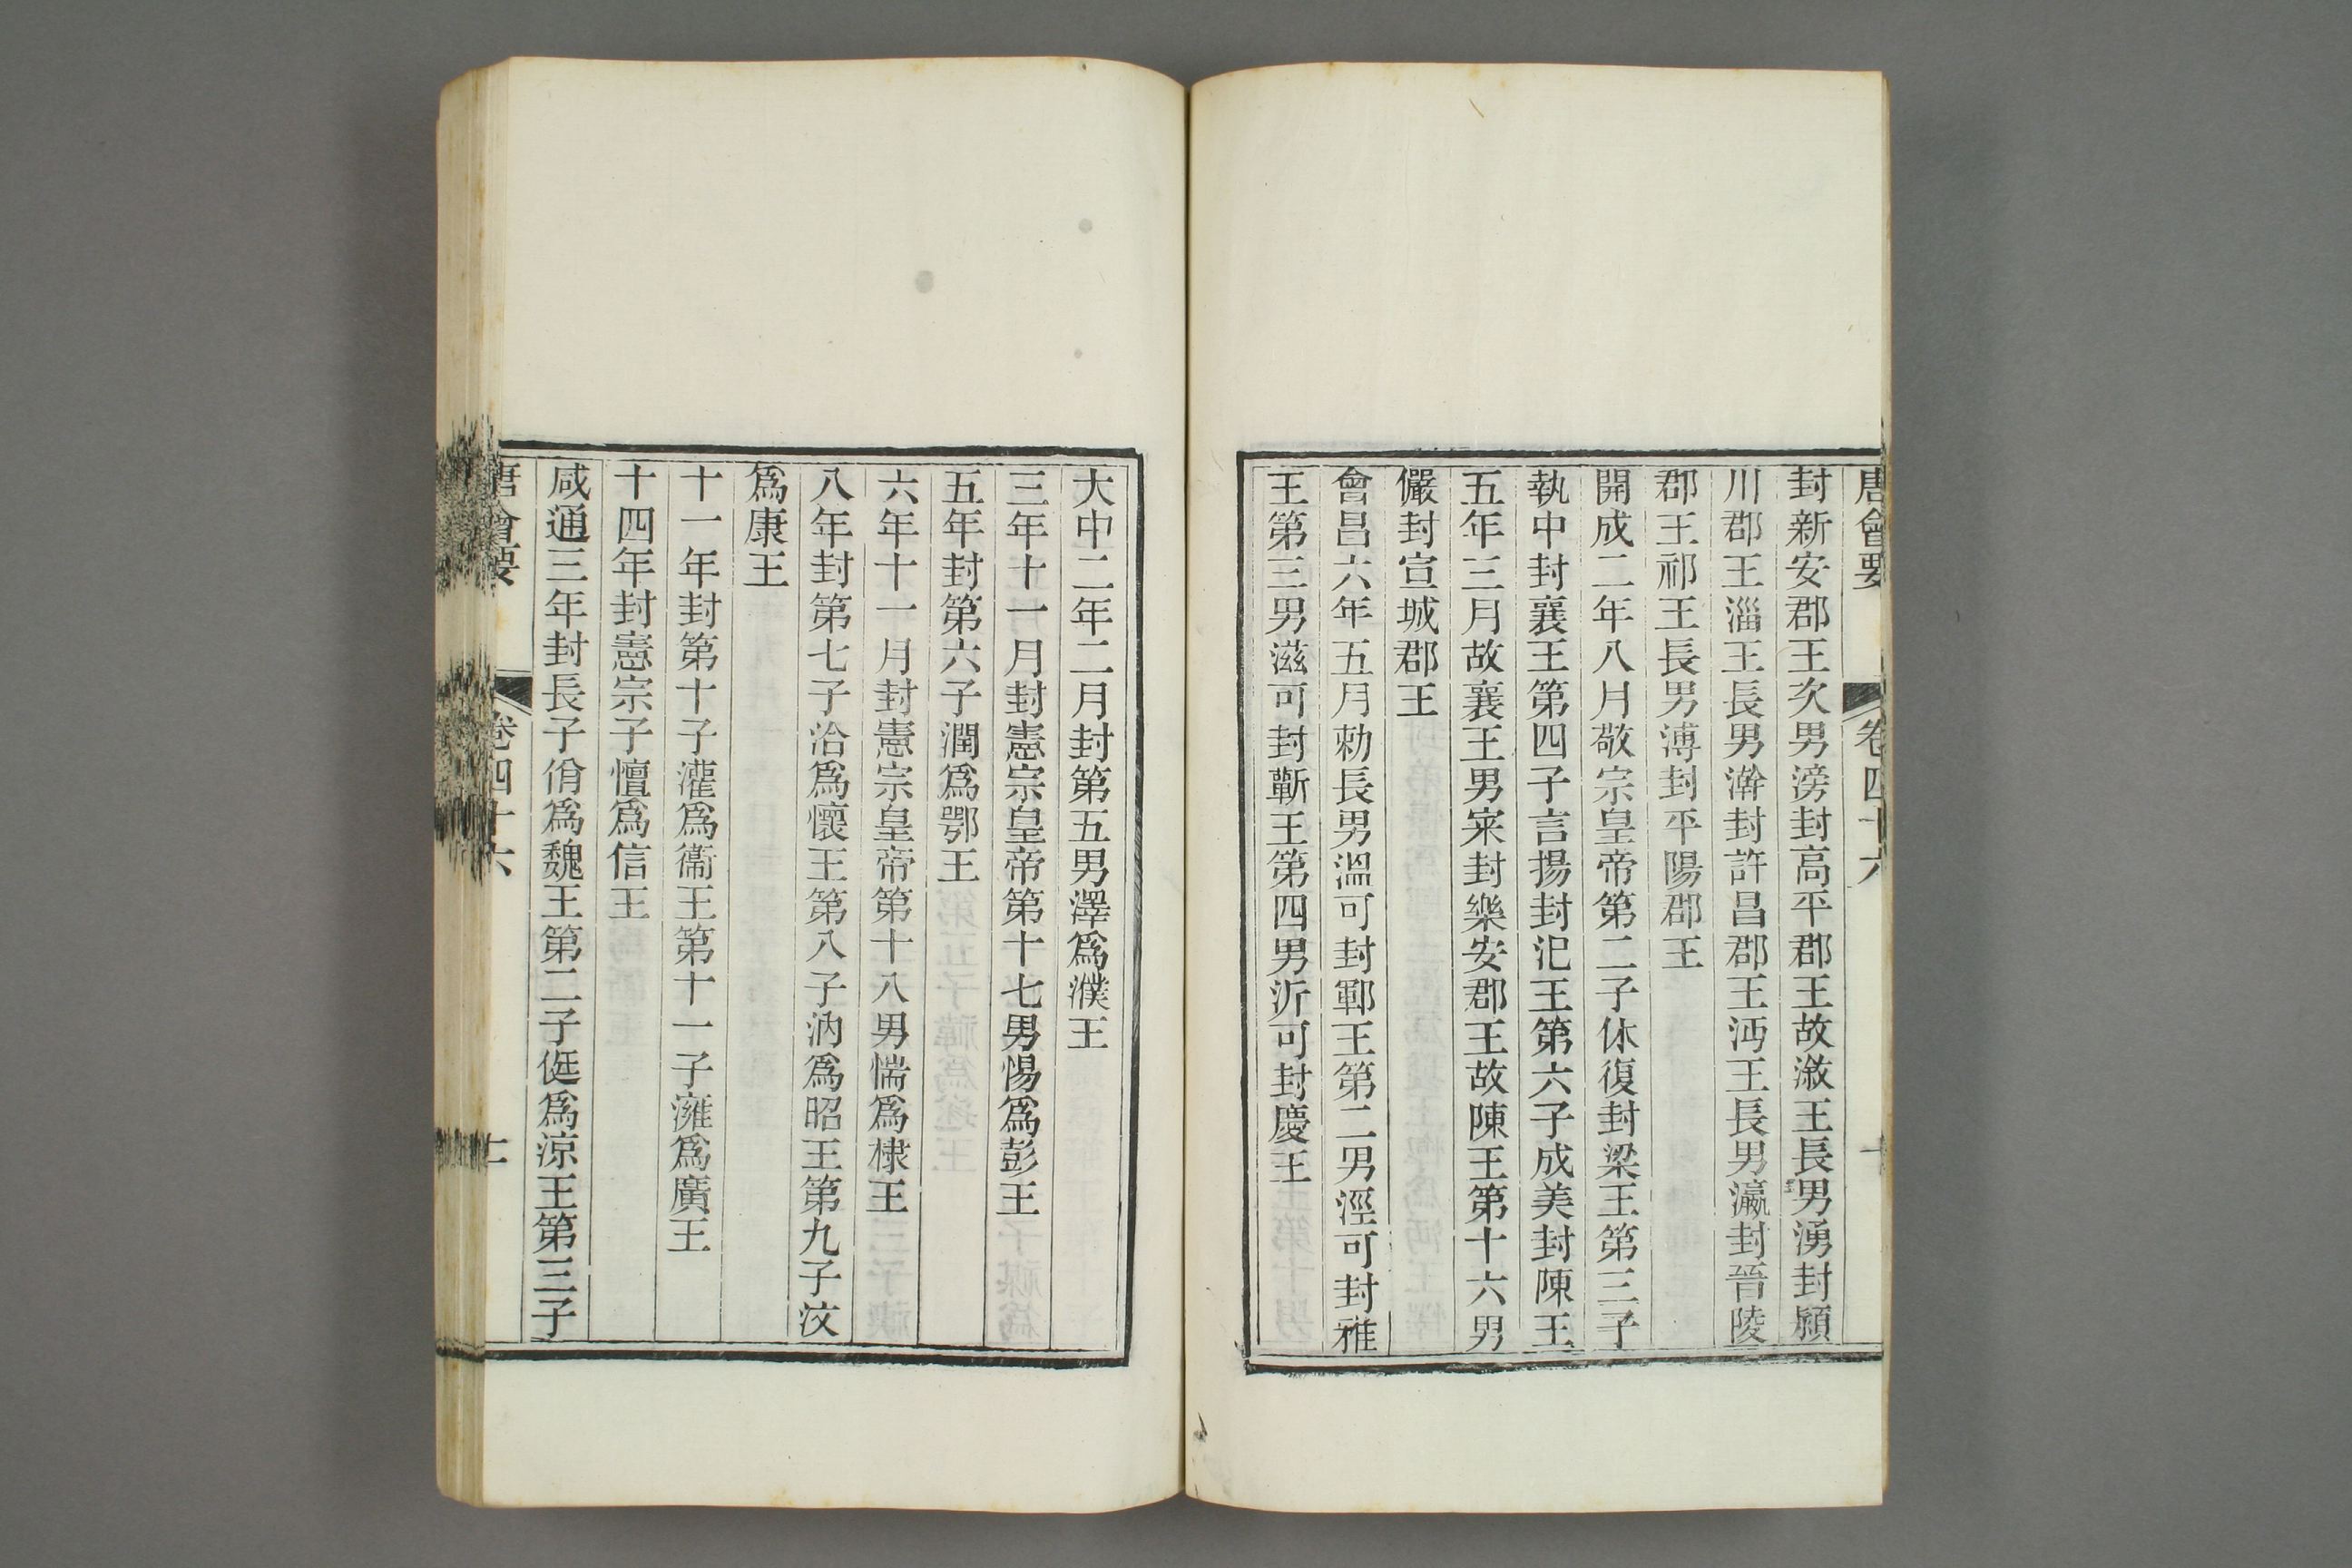 唐會要 卷四十六
封新安郡王次男滂封高平郡王故漵王長男湧封潁
川郡王淄王長男澣封許昌郡王沔王長男瀛封晉陵
郡王祁王長男溥封平陽郡王
開成二年八月敬宗皇帝第二子休復封梁王第三子
執中封襄王第四子言揚封汜王第六子成美封陳王
五年三月故襄王男寀封樂安郡王故陳王第十六男
儼封宣城郡王
會昌六年五月勑長男溫可封鄆王第二男涇可封雅
王第三男滋可封蘄王第四男沂可封慶王
大中二年二月封第五男澤爲濮王
三年十一月封憲宗皇帝第十七男惕爲彭王
五年封第六子潤爲鄂王
六年十一月封憲宗皇帝第十八男惴爲棣王
八年封第七子洽爲懷王第八子汭爲昭王第九子汶
爲康王
十一年封第十子灌爲衞王第十一子澭爲廣王
十四年封憲宗子憻爲信王
咸通三年封長子佾爲魏王第二子侹爲涼王第三子
唐會要 卷四十六